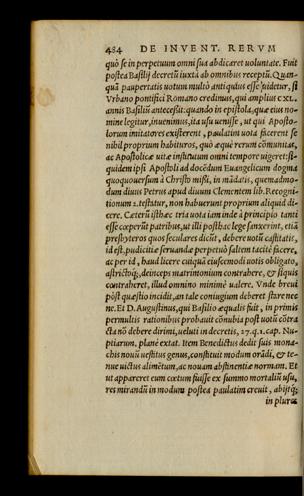 484 DE INVENT. RERVM
quò se in perpetuum omni sua abdicaret uoluntate. Fuit
postea Basilij decretũ iuxtà ab omnibus receptũ. Quan-
quã paupertatis uotum multò antiquius esse uidetur, si
Vrbano pontifici Romano credimus, qui amplius CXL.
annis Basiliũ antecessit: quando in epistola, quæ eius no-
mine legitur, inuenimus, ita usu uenisse, ut qui Aposto-
lorum imitatores existerent, paulatim uota facerent se
nihil proprium habituros, quò æquè rerum cõmunitas,
ac Apostolicæ uitæ institutum omni tempore uigeret: si-
quidem ipsi Apostoli ad docẽdum Euangelicum dogma
quoquouersum à Christo missi, in mãdatis, quemadmo-
dum diuus Petrus apud diuum Clementem lib. Recogni-
tionum 2. testatur, non habuerunt proprium aliquid di-
cere. Cæterũ isthæc tria uota iam inde à principio tanti
esse cœperũt patribus, ut illi posthac lege sanxerint, etiã
presbyteros quos seculares dicũt, debere uotũ castitatis,
id est, pudicitiæ seruandæ perpetuò saltem tacitè facere,
ac per id, haud licere cuiquã eiuscemodi uotis obligato,
astrictoq́;, deinceps matrimonium contrahere, & siquis
contraheret, illud omnino minimè ualere. Vnde breui
pòst quæstio incidit, an tale coniugium deberet stare nec
ne. Et D. Augustinus, qui Basilio æqualis fuit, in primis
permultis rationibus probauit cõnubia post uotũ cõtra
cta nõ debere dirimi, ueluti in decretis, 27. q. 1. cap. Nu-
ptiarum. planè extat. Item Benedictus dedit suis mona-
chis nouũ uestitus genus, constituit modum orãdi, & te-
nue uictus alimẽtum, ac nouam abstinentiæ normam. Et
ut appareret eum cœtum fuisse ex summo mortaliũ usu,
res mirandũ in modum postea paulatim creuit, abijtq́;
in plures